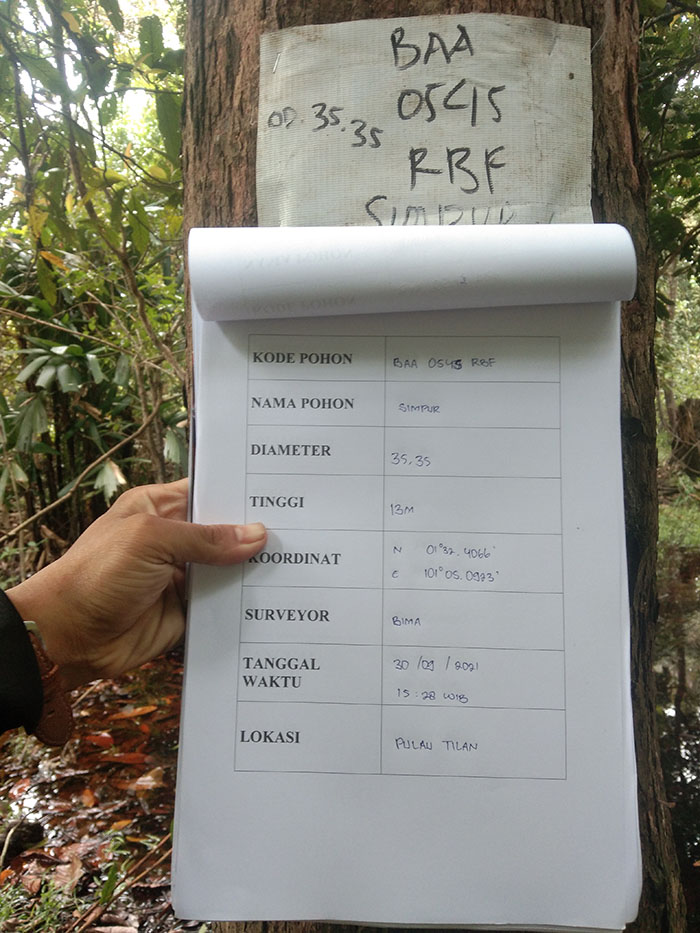 BAA
0545
OD. 35.35
RBF
SIMPUR
KODE POHON BAA 0545 RBF
NAMA POHON SIMPUR
DIAMETER 35,35
TINGGI 13M
KOORDINAT N 01°32.4066'
E 101°05.0923'
SURVEYOR BIMA
TANGGAL 30/09/2021
WAKTU 15:28 WIB
LOKASI PULAU TILAN